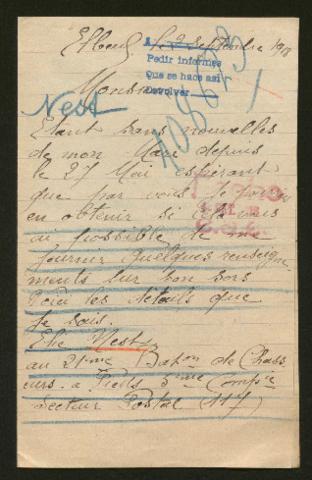 Elbeuf, le 2 Septembre 1918
Pedir informes
Que se hace así
Devolver
Monsieur
Nest
108678
Etant sans nouvelles
de mon Mari depuis
le 27 Mai espérant
que par vous je
en obtenir si cela vous
ai possible de me
fournir quelques renseigne
ments sur son sors
Voici les détails que
je sais.
Elie Nest
au 21eme Baton de Chass
eurs a Pieds 5eme Compie
Secteur Postal (117)